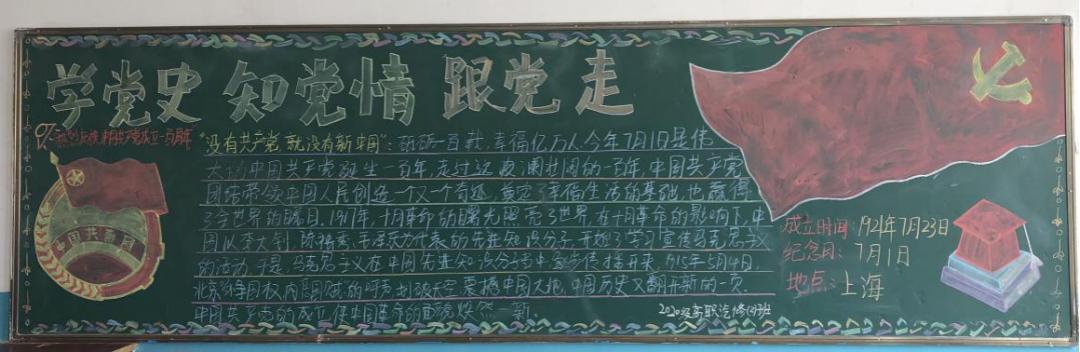 学党史 知党情 跟党走
热烈庆祝中国共产党成立一百周年
"没有共产党,就没有新中国":砥砺百载,幸福亿万人,今年7月1日是伟
大的中国共产党诞生一百年,走过这波澜壮阔的一百年,中国共产党
团结带领中国人民创造一个又一个奇迹,奠定了幸福生活的基础,也赢得
了全世界的瞩目.1917年,十月革命的曙光照亮了世界,在十月革命的影响下,中
国以李大钊、陈独秀、毛泽东为代表的先进知识分子,开始了学习宣传马克思主义
的活动,于是,马克思主义在中国先进知识分子当中宣传播开来,1915年5月4日,
北京 争国权内 国贼的呼声划破天空震撼中国大地,中国历史又翻开新的一页.
中国共产党的成立,使中国革命的面貌焕然一新.
中国共青团
成立时间:1921年7月23日
纪念日:7月1日
地点:上海
2020级高职汽修(4)班